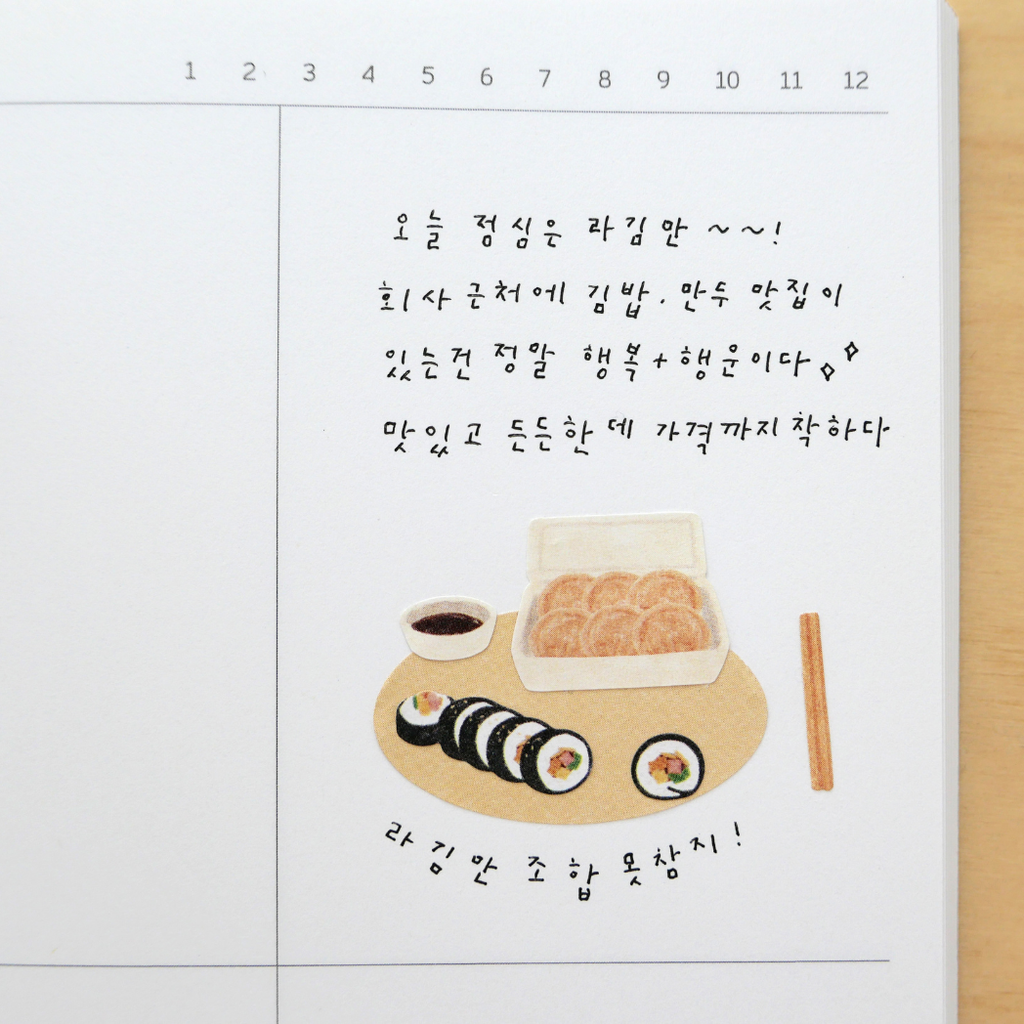 1 2 3 4 5 6 7 8 9 10 11 12
오늘 점심은 라김만 ~~!
회사 근처에 김밥. 만두 맛집이
있는건 정말 행복+행운이다
맛있고 든든한데 가격까지 착하다
라김만 조합 못참지!